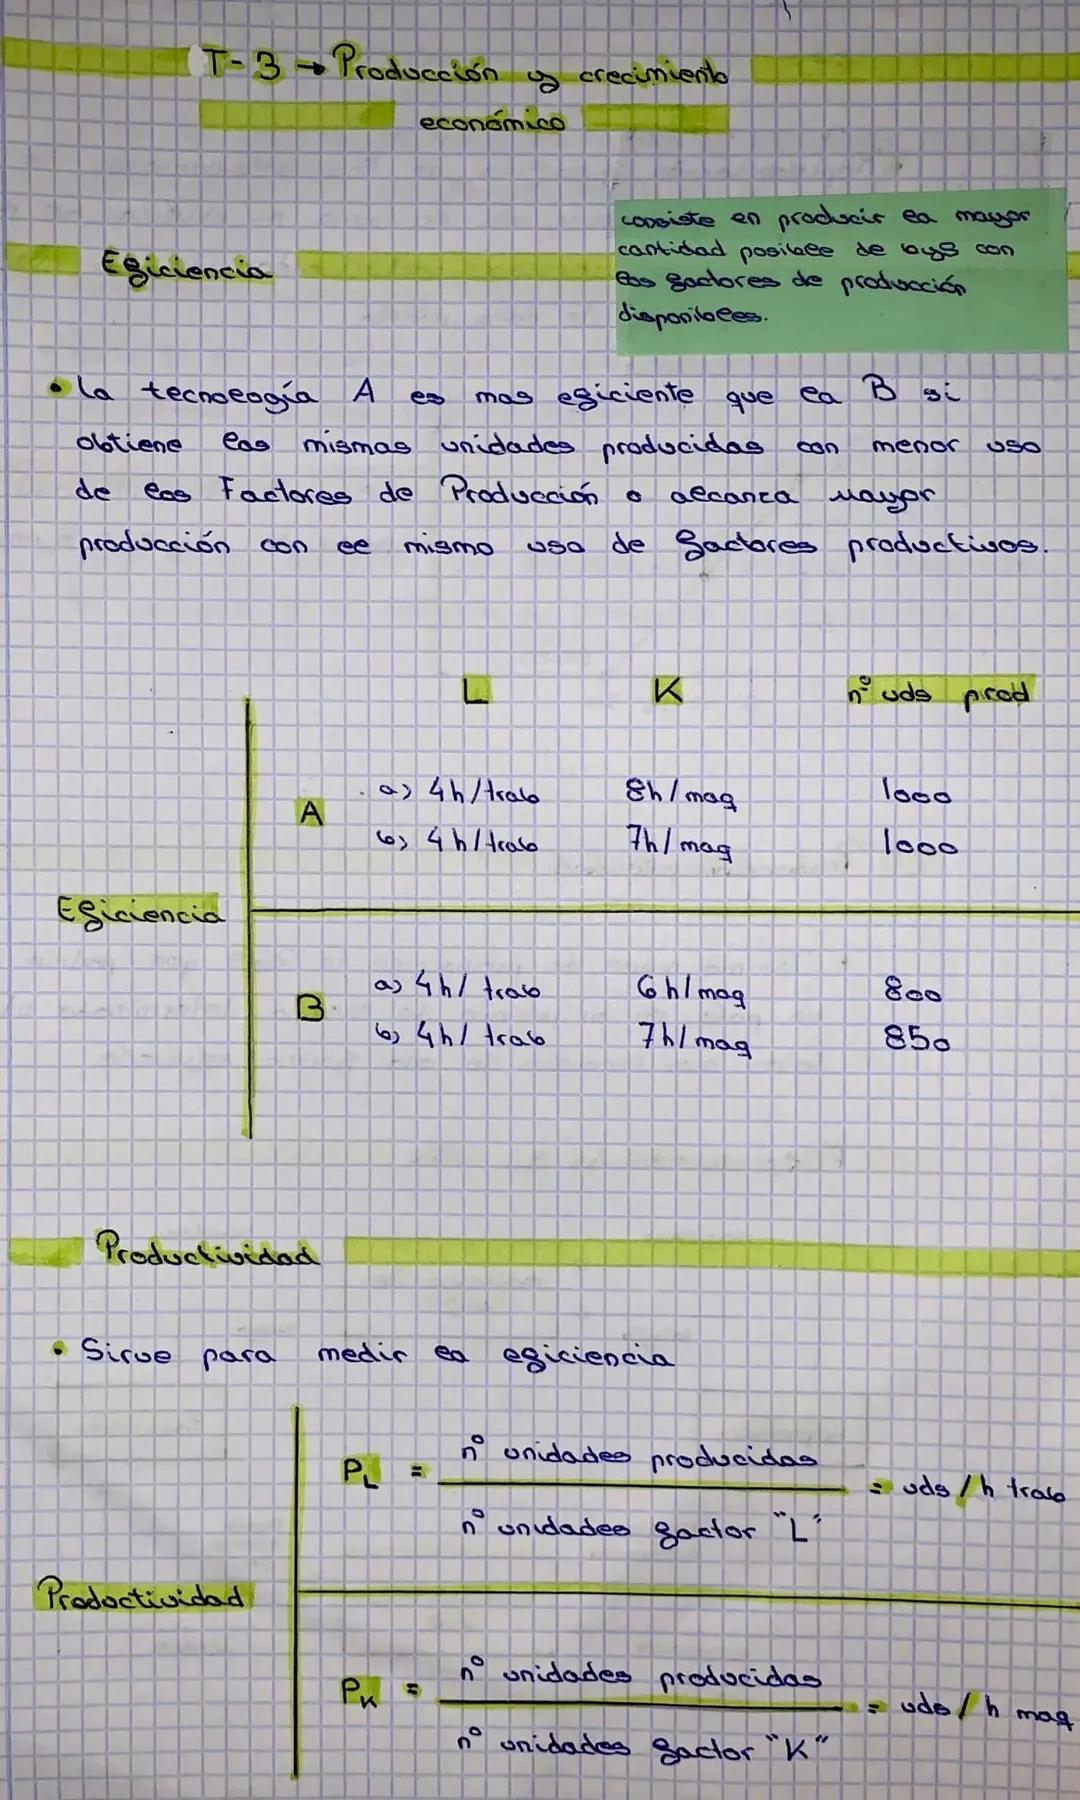 T-3 → Producción y crecimiento
económico
consiste en producir la mayor
cantidad posible de byS con
los factores de producción
disponibles.
Eficiencia
• La tecnología A es mas eficiente que la B si
obtiene las mismas unidades producidas con menor uso
de los Factores de Producción o alcanza mayor
producción con el mismo uso de factores productivos.
L K nº uds prod
A a) 4h/trab 8h/maq 1000
b) 4h/trab 7h/maq 1000
Eficiencia
B a) 4h/trab 6h/maq 800
b) 4h/trab 7h/maq 850
Productividad
• Sirve para medir la eficiencia
nº unidades producidas
PL = = uds/h trab
nº unidades factor "L"
Productividad
nº unidades producidas
PK = = uds/h maq
nº unidades factor "K"